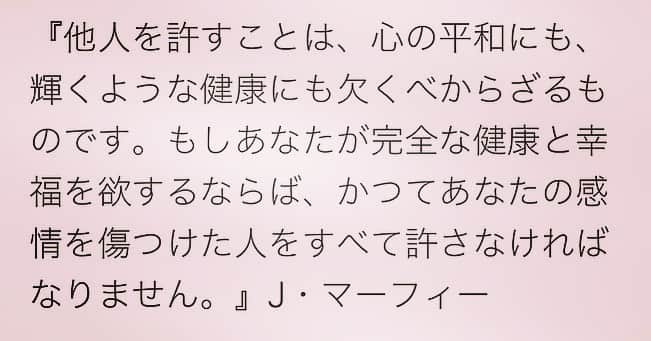 『他人を許すことは、心の平和にも、
輝くような健康にも欠くべからざるも
のです。もしあなたが完全な健康と幸
福を欲するならば、かつてあなたの感
情を傷つけた人をすべて許さなければ
なりません。』J・マーフィー